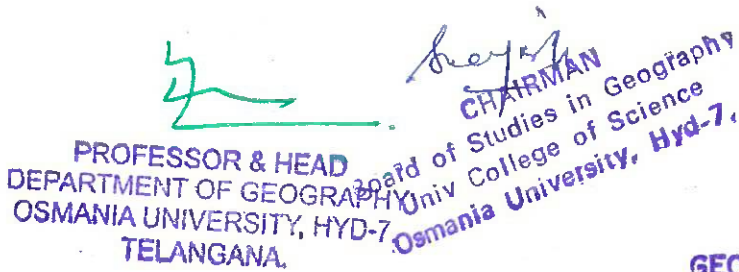 PROFESSOR & HEAD
DEPARTMENT OF GEOGRAPHY
OSMANIA UNIVERSITY, HYD-7
TELANGANA.
CHAIRMAN
Board of Studies in Geography
Univ College of Science
Osmania University, Hyd-7.
GEO